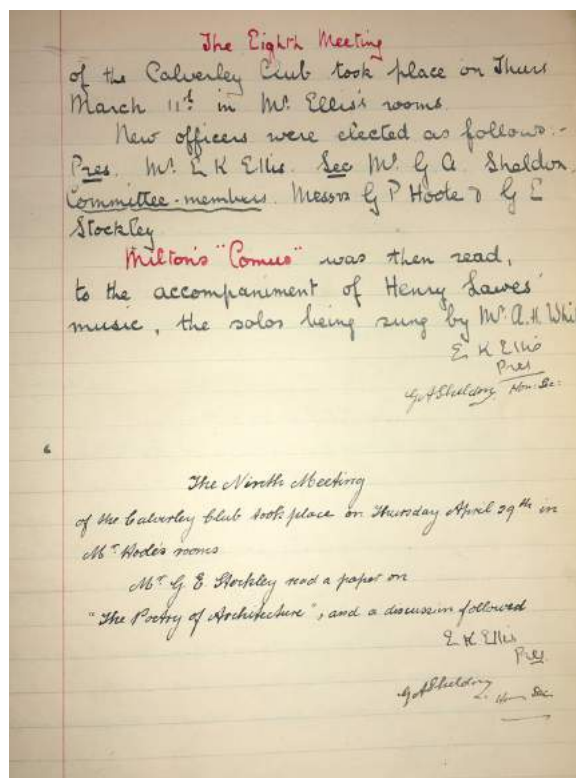 The Eighth Meeting
of the Calverley Club took place on Thurs
March 11th in Mr. Ellis's rooms.
New officers were elected as follows:-
Pres. Mr. E K Ellis. Sec Mr. G A. Sheldon.
Committee-members. Messrs G P Hoole & G E
Stockley
Milton's "Comus" was then read,
to the accompaniment of Henry Lawes'
music, the solos being sung by Mr. A. H. Whi
E K Ellis
Pres
G A Sheldon Hon: Sec:
The Ninth Meeting
of the Calverley Club took place on Thursday April 29th in
Mr rooms
Mr. G. E. Stockley read a paper on
"The Poetry of Architecture", and a discussion followed
E K Ellis
Pres.
G A Sheldon
Hon Sec